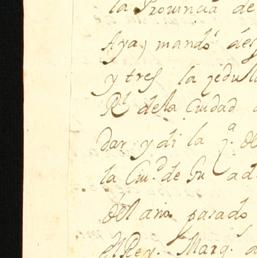 la Provincia de
Aya, mandó de
y tres la zedul
Rl. de la Ciudad
dar y di la pa. de
la Ciud. de Gu ad
del ano pasado
del Rey. Marq.